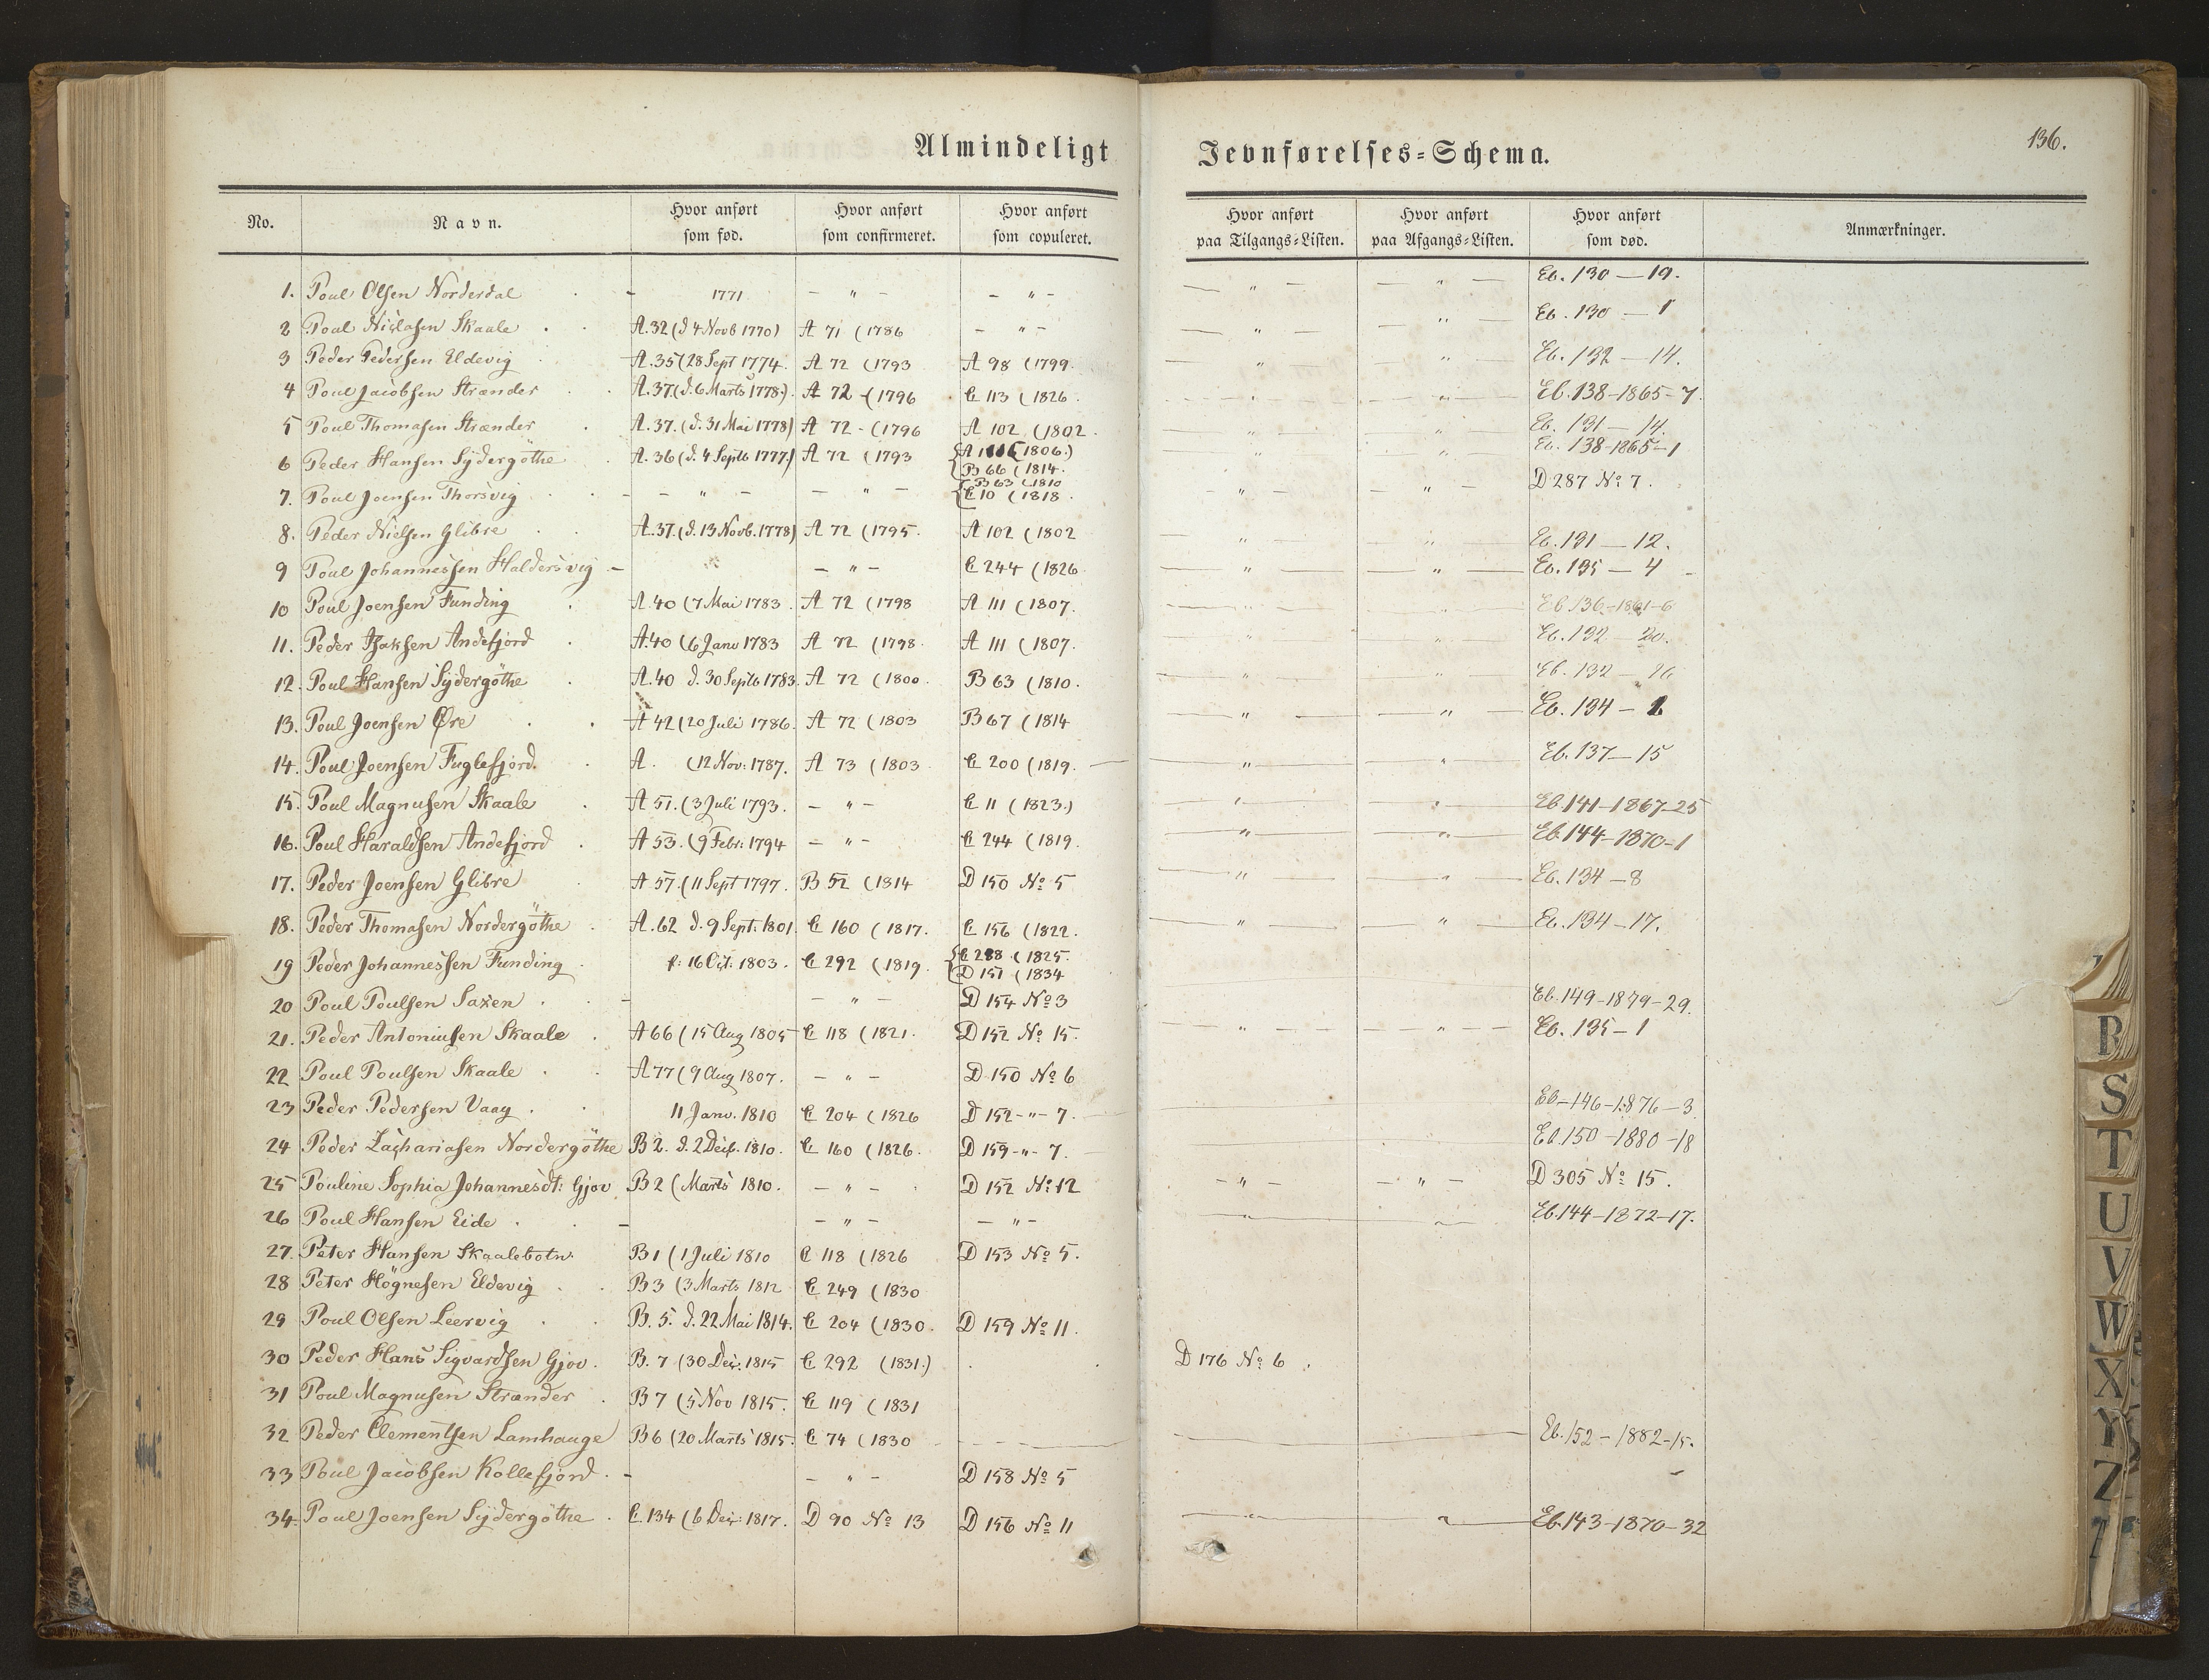 Almindeligt Jevnførelses-Schema.
136.
No. Navn. Hvor anført som fød. Hvor anført som confirmeret. Hvor anført som copuleret. Hvor anført paa Tilgangs-Listen. Hvor anført paa Afgangs-Listen. Hvor anført som død. Anmærkninger.
1. Poul Olsen Norderdal - 1771 - " - - " - - " - - " - Eb. 130 - 19.
2 Poul Niclasen Skaale A.32 (d 4 Novb 1770) A 71 (1786 - " - - " - - " - Eb. 130 - 1
3 Peder Pedersen Eldevig A.35 (28 Sept 1774. A 72 (1793 A 98 (1799. " " Eb. 132 - 14.
4 Poul Jacobsen Strænder A.37. (d. 6 Marts 1778.) A 72 - (1796 C 113 (1826. " " Eb. 138-1865-7.
5 Poul Thomasen Strænder A.37. (d. 31 Mai 1778) A 72 - (1796 A 102 (1802. " " Eb. 131 - 14.
6 Peder Hansen Sydergöthe A.36 (d. 4 Septb 1777.) A 72 (1793 (1806.) B 66 (1814. Eb. 138-1865-1
7. Poul Joensen Thorsvig - - " - - " - B 63 (1810 C 10 (1818. - " - - " - D 287 No 7.
8. Peder Nielsen Glibre A.37. (d. 13 Novb. 1778) A 72 (1795. A 102 (1802 " " Eb. 131 - 12.
9 Poul Johannessen Haldersvig - " - " - C 244 (1826 " " Eb. 135 - 4
10 Poul Joensen Funding A.40 (7 Mai 1783. A 72 (1798 A 111 (1807. " " Eb 136-1861-6
11. Peder Isaksen Andefjord A.40 (6 Janv 1783 A 72 (1798. A 111 (1807. " " Eb. 132 - 20.
12. Poul Hansen Sydergöthe A.40 d. 30 Septb 1783. A 72 (1800. B 63 (1810. " " Eb. 132 - 26
13. Poul Joensen Øre A 42 (20 Juli 1786. A 72 (1803 B 67 (1814 " " Eb. 134 -
14. Poul Joensen Fuglefjord. A. (12 Nov: 1787. A 73 (1803 C 200 (1819. " " Eb. 137 - 15
15. Poul Magnusen Skaale A 51. (3 Juli 1793. - " - C 11 (1823.) " " Eb. 141-1867-25
16. Poul Haraldsen Andefjord A 53. (9 Febr: 1794 - " - C 244 (1819. " " Eb. 144-1870-1
17. Peder Joensen Glibre A 57. (11 Sept 1797. B 52 (1814 D 150 No 5 " " Eb. 134 - 8
18. Peder Thomasen Nordergöthe A. 62 d. 9 Sept. 1801. C 160 (1817. C 156 (1822. " " Eb. 134 - 17.
19 Peder Johannessen Funding f: 16 Oct: 1803. C 292 (1819. C 288 (1825. D 151 (1834
20 Poul Poulsen Saxen - - " - D 154 No 3 Eb. 149-1879-29.
21. Peder Antoniusen Skaale A 66 (15 Aug 1805 C 118 (1821. D 152 No 15. " " Eb. 135 - 1
22 Poul Poulsen Skaale A 77 (9 Aug 1807. - " - D 150 No 6
23 Peder Pedersen Vaag 11 Janv. 1810 C 204 (1826 D 152 - " - 7. Eb-146-1876-3.
24 Peder Zachariasen Nordergöthe B 2. d. 2 Dec. 1810. C 160 (1826. D 159 - " - 7. Eb. 150-1880-18
25 Pouline Sophia Johannesdt: Gjov B 2 (Marts 1810. - " - D 152 No 12 - " - - " - D 305 No 15.
26 Poul Hansen Eide - - " - - " - " " Eb. 144-1872-17.
27. Peter Hansen Skaalebotn: B 1 (1 Juli 1810 C 118 (1826 D 153 No 5.
28 Peter Högnesen Eldevig B 3 (3 Marts 1812 C 249 (1830
29 Poul Olsen Leervig B. 5. d. 22 Mai 1814. C 204 (1830. D 159 No 11.
30 Peder Hans Sigvardsen Gjov. B. 7 (30 Dec: 1815 C 292 (1831.) D 176 No 6.
31 Poul Magnusen Strænder B 7 (5 Nov 1815. C 119 (1831
32 Peder Clementsen Lamhauge B 6 (20 Marts 1815. C 74 (1830 Eb. 152-1882-15.
33 Poul Jacobsen Kollefjord. - - " - D 158 No 5 -
34. Poul Joensen Sydergöthe C. 134 (6 Dec: 1817. D 90 No 13 D 156 No 11 " " Eb. 143-1870-32
R
S
T
U
V
W
X
Y
Z